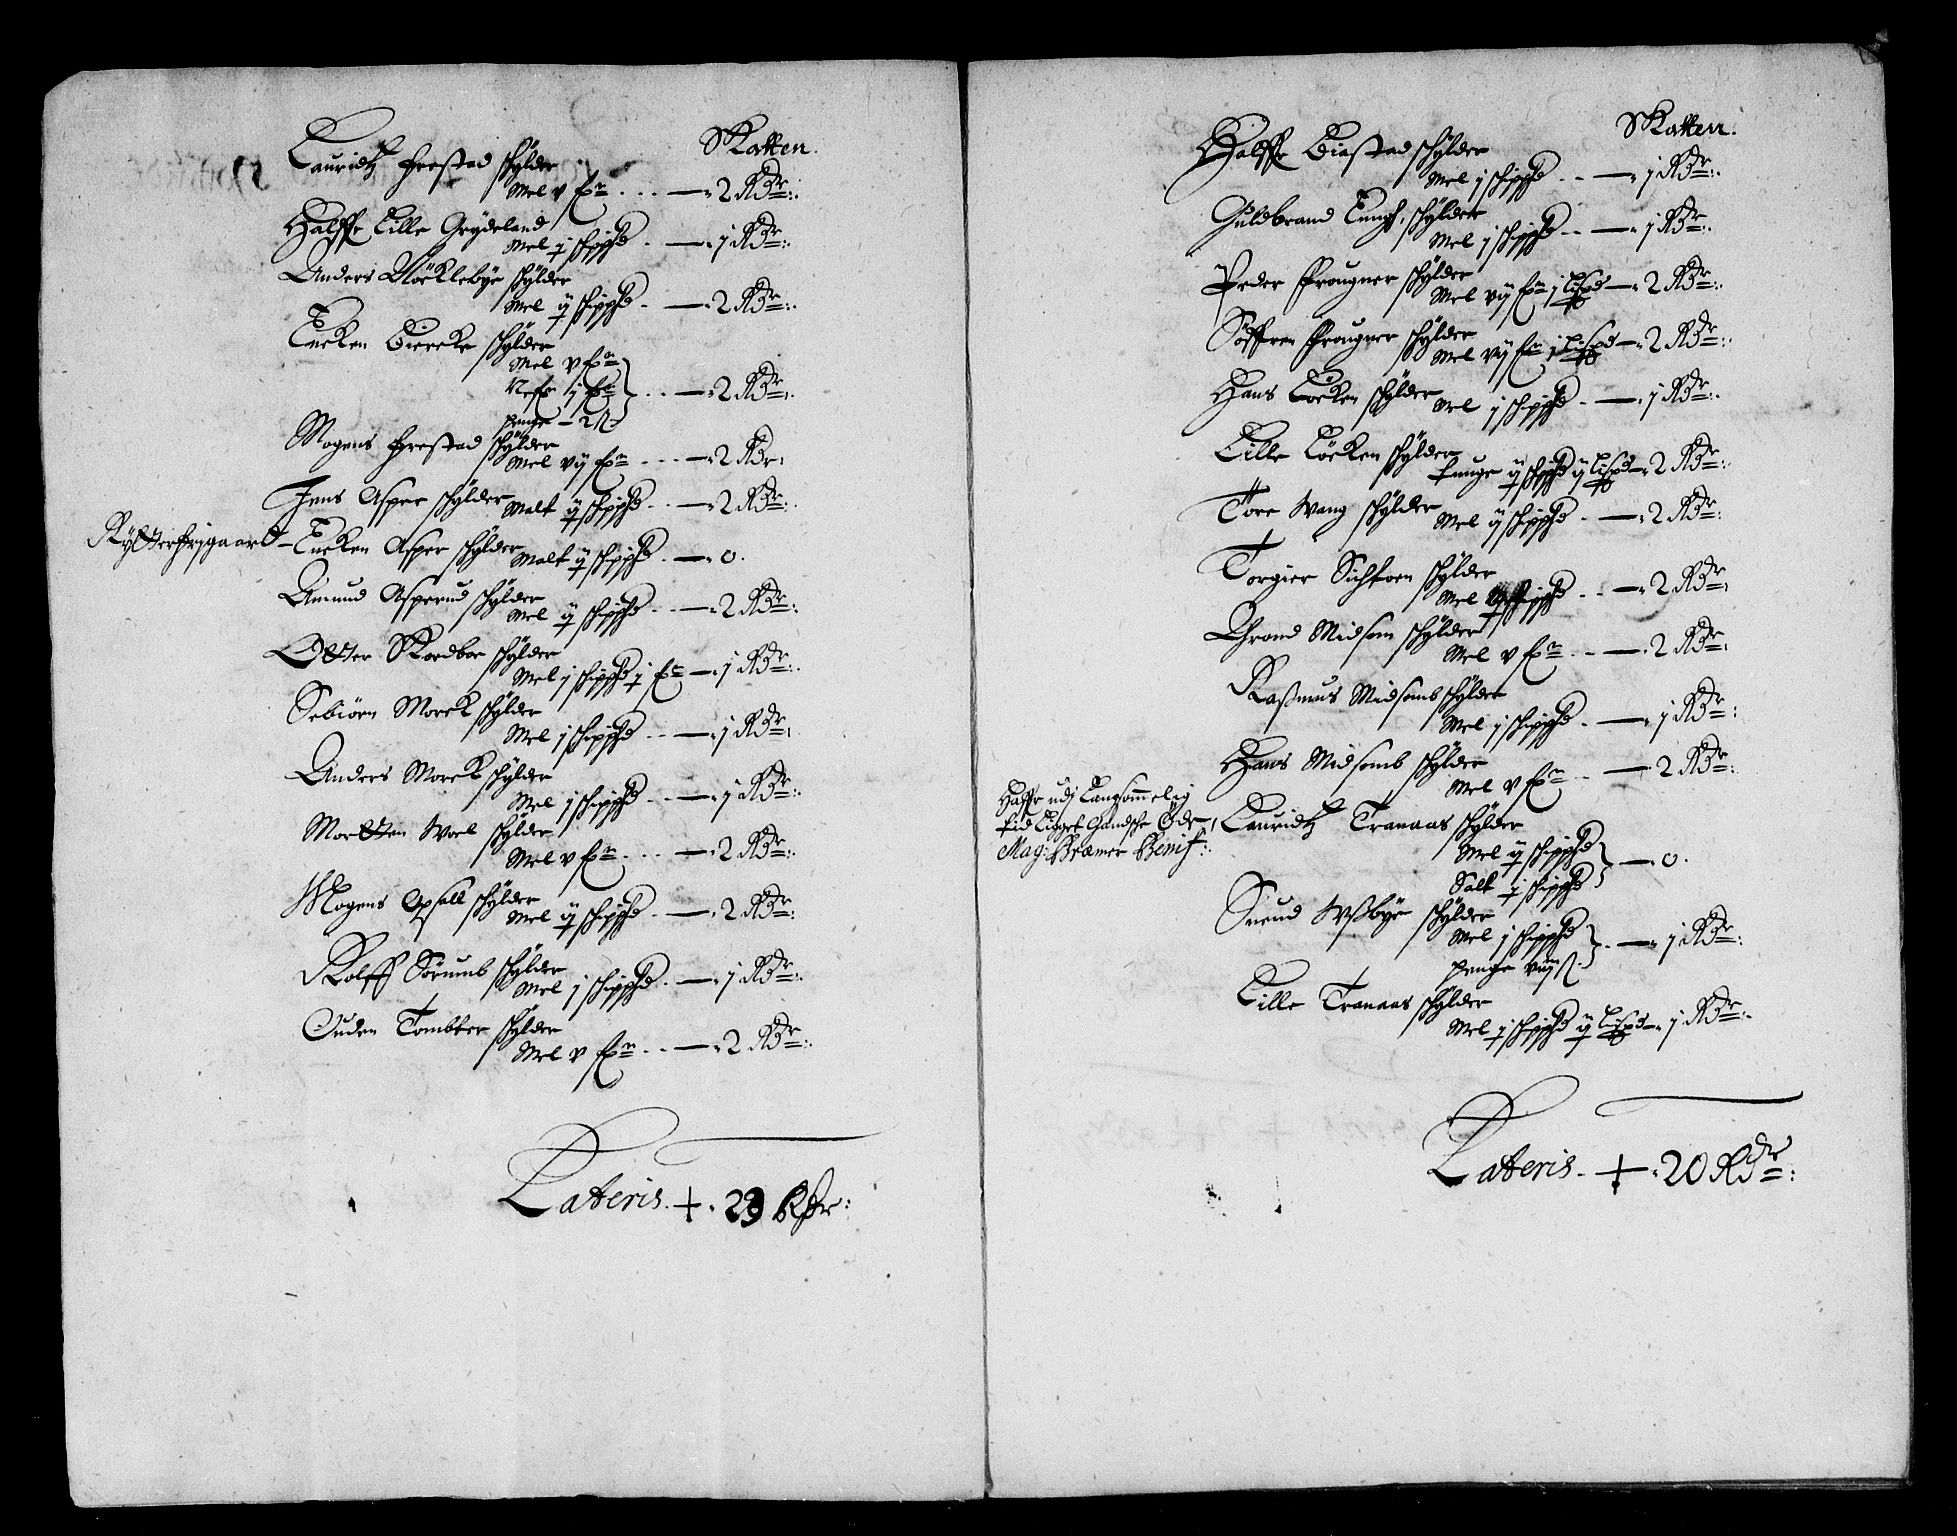 Skatten.
Lauridtz Frestad schylder
Mel v fr . . . — 2 Rdr:
Halffe Lille Grydeland
Mel j schippd . — j Rdr:
Anders Nöcklebye schylder
Mel ij schippd . — 2 Rdr:
Encken Biercke schylder
Mel v fr
Nefr j fr } . . — 2 Rdr.
penge - 2 ß
Mogens Frestad schylder
Mel vij fr . . . — 2 Rdr:
Jens Asper schylder
Malt ij schippd . . — 2 Rdr:
Rytterfrjgaard - Encken Asper schylder
Malt ij schippd . — 0.
Amund Asperud schylder
Mel ij schippd . . — 2 Rdr:
Otter Skoedboe schylder
Mel j schippd j fr — j Rdr:
Sebiörn Morck schylder
Mel j schippd . . — j Rdr:
Anders Morck schylder
Mel j schippd . . — j Rdr:
Mortten Woel schylder
Mel v fr . . . — 2 Rdr:
Mogens Opsall schylder
Mel ij schippd . — 2 Rdr:
Rolff Sörumb schylder
Mel j schippd . — j Rdr:
Ouden Tombter schylder
Mel v fr . . — 2 Rdr:
Lateris + 29 Rdr:
Skatten.
Halffe Biestad schylder
Mel j schippd . . — j Rdr:
Guldbrand Lungs, schylder
Mel j schippd . . — j Rdr:
Peder Frougner schylder
Mel vij fr j Lispd — 2 Rdr:
Söffren Frougner schylder
Mel vij fr j Lispd — 2 Rdr:
Hans Löcken schylder
Mel j schippd . — j Rdr:
Lille Löcken schylder
tunge ij schippd ij Lispd — 2 Rdr:
Tore Wang schylder
Mel ij schippd . — 2 Rdr:
Torgier Sichkoen schylder
Mel schippd . . — 2 Rdr:
Thrond Midsom schylder
Mel v fr . . — 2 Rdr:
Rassmus Midsomb schylder
Mel j schippd . — j Rdr:
Hans Midsomb schylder
Mel v fr . . — 2 Rdr:
Haffr udj Langsommelig
tid Ligget Gandsche Öde,
Mag: Bræmer Benif:
Lauridtz Tranaas schylder
Mel ij schippd
Salt j schippd } — 0.
Suend Wssbye schylder
Mel j schippd
penge viij ß } . — j Rdr:
Lille Tranaas schylder
Mel j schippd ij Lispd — j Rdr:
Lateris . + . 20 Rdr: